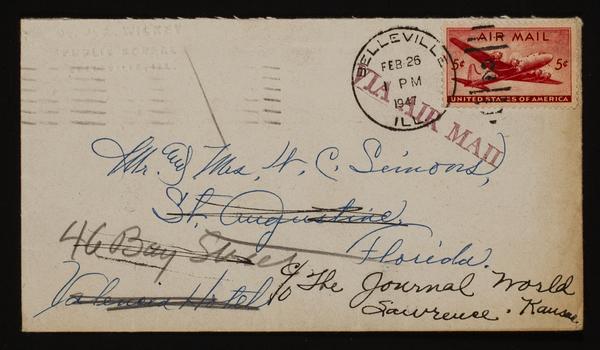 BELLEVILLE
FEB 26
1 PM
1947
ILL.
AIR MAIL
5¢ 5¢
UNITED STATES OF AMERICA
VIA AIR MAIL
Mr. and Mrs. W. C. Simons,
St. Augustine,
Florida.
46 Bay Street
Valencia Hotel
c/o The Journal World
Lawrence. Kansas.